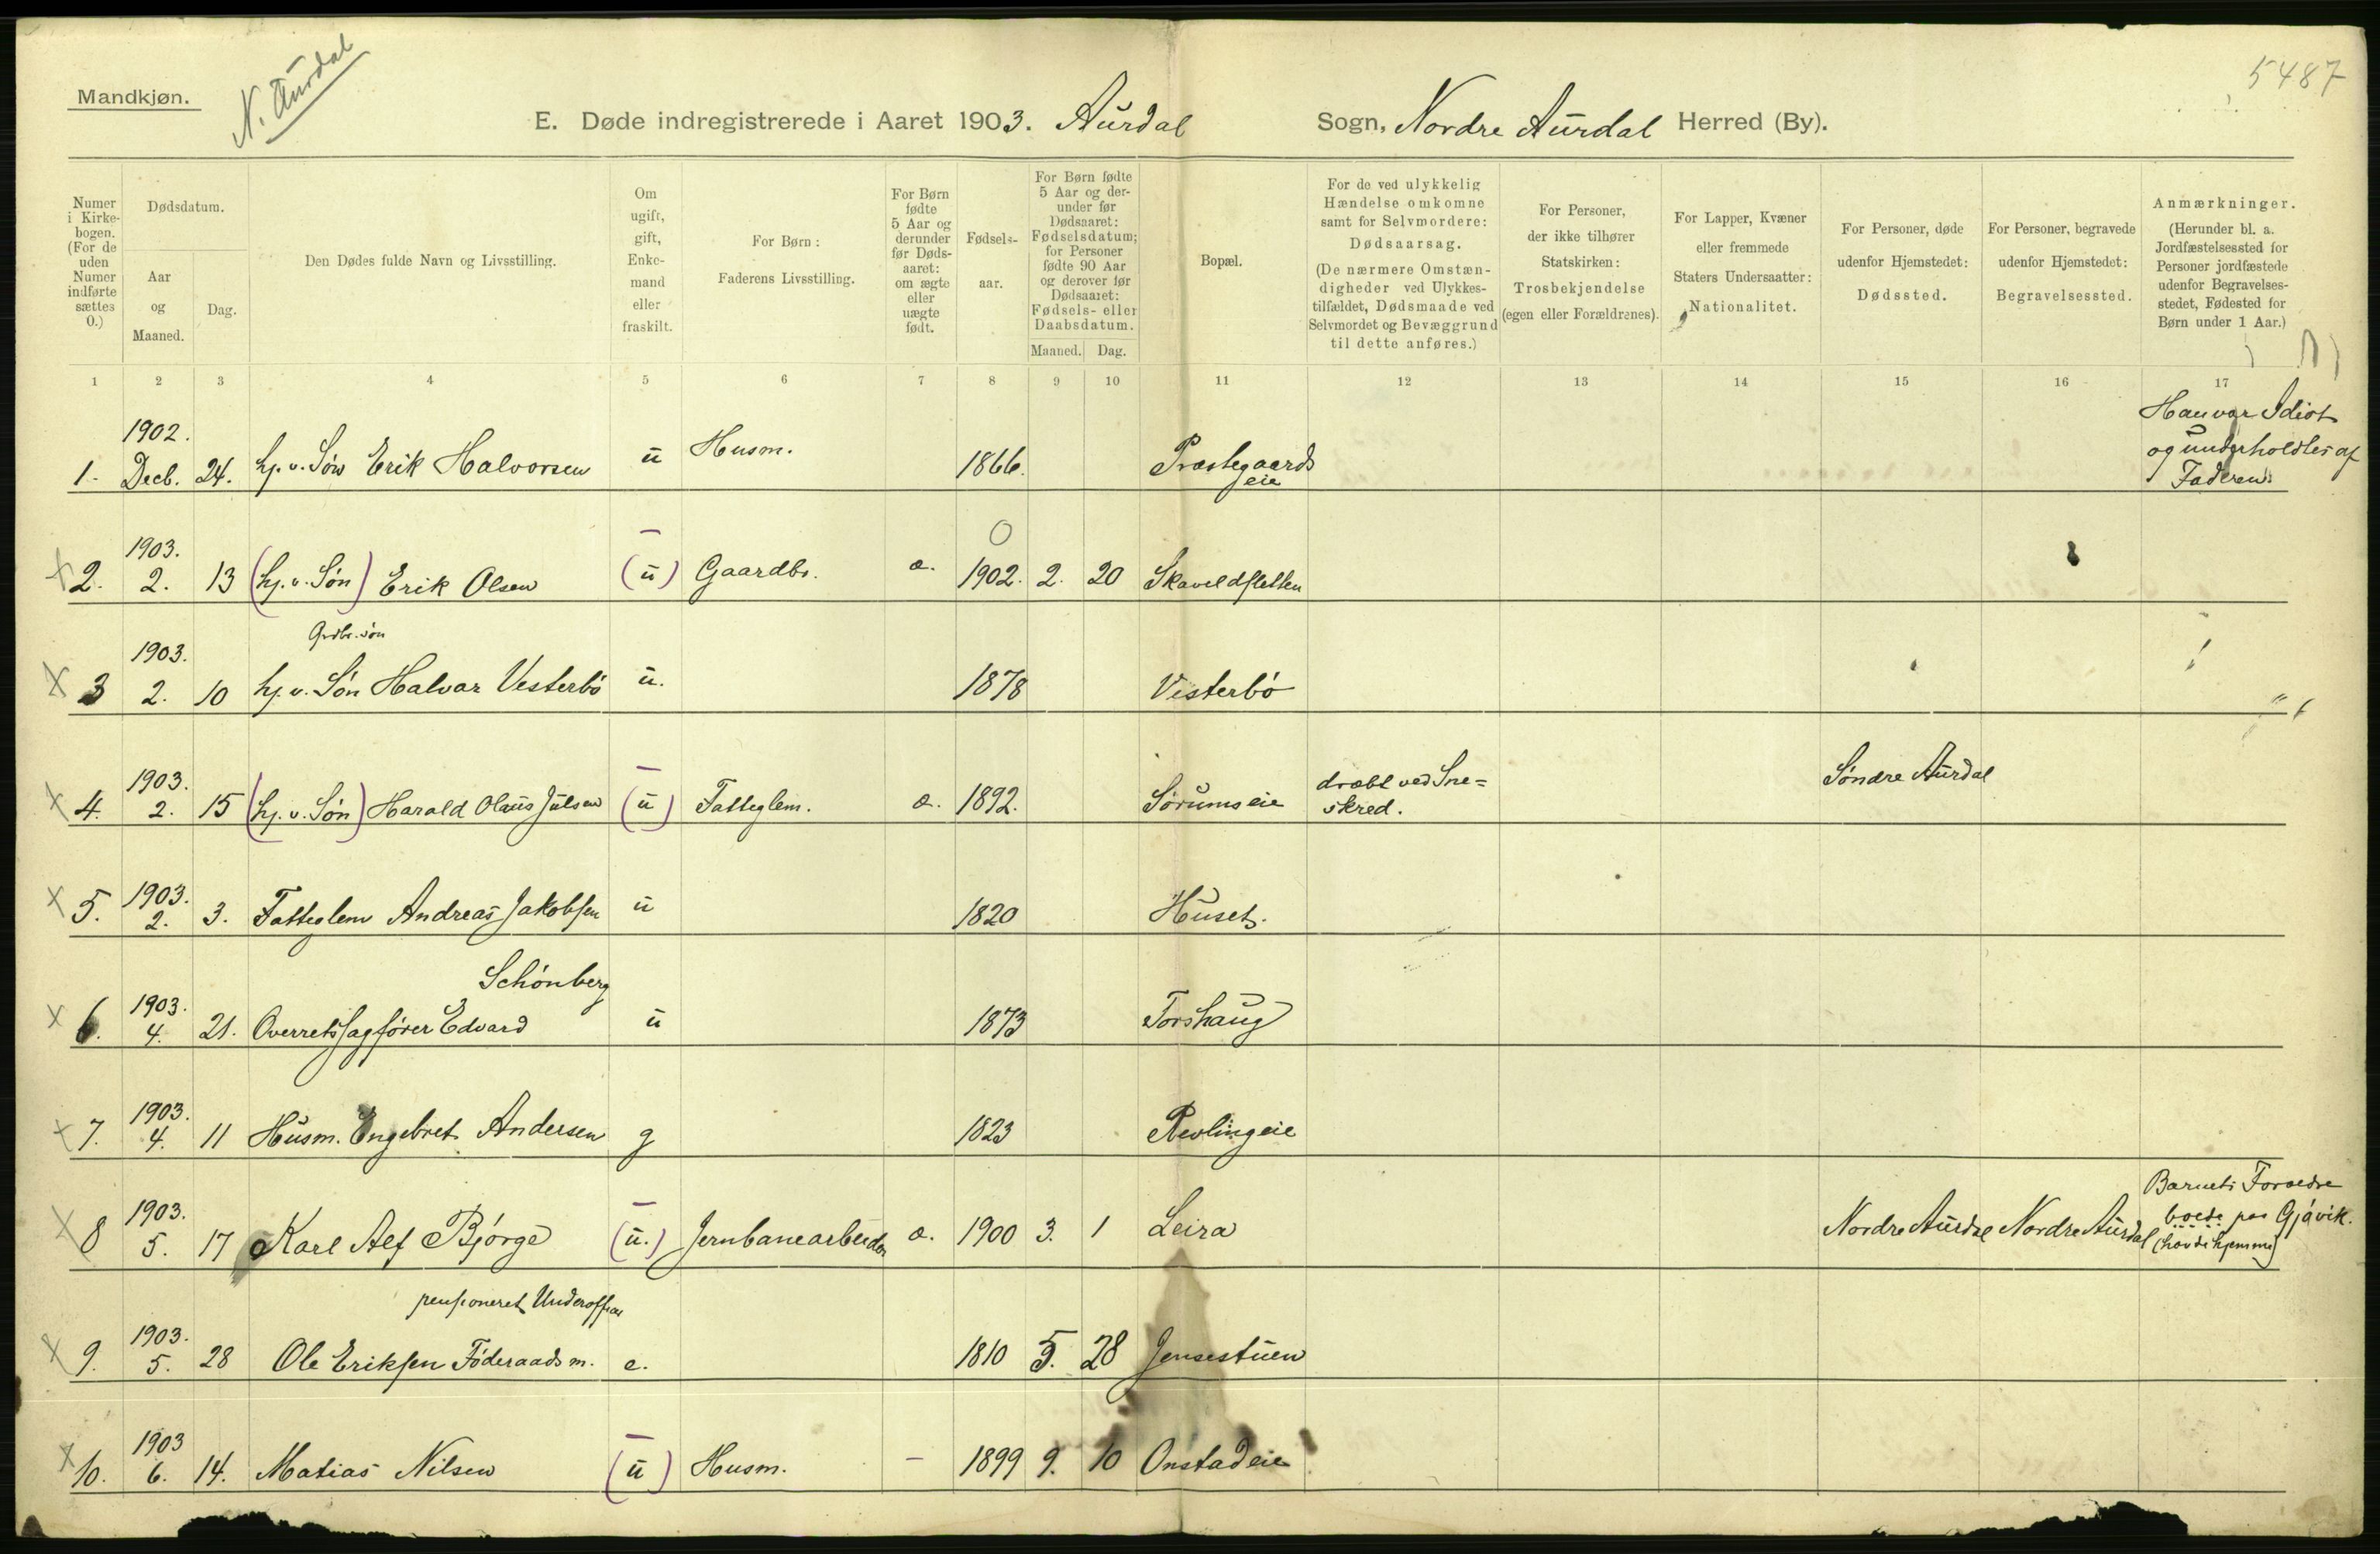 Mandkjøn.
N. Aurdal
5487
E. Døde indregistrerede i Aaret 1903. Aurdal Sogn, Nordre Aurdal Herred (By).
Numer i Kirkebogen. (For de uden Numer indførte sættes 0.)
Dødsdatum.
Aar og Maaned.
Dag.
Den Dødes fulde Navn og Livsstilling.
Om ugift, gift, Enkemand eller fraskilt.
For Børn: Faderens Livsstilling.
For Børn fødte 5 Aar og derunder før Dødsaaret: om ægte eller uægte født.
Fødselsaar.
For Børn fødte 5 Aar og derunder før Dødsaaret: Fødselsdatum; for Personer fødte 90 Aar og derover før Dødsaaret: Fødsels- eller Daabsdatum.
Maaned. Dag.
Bopæl.
For de ved ulykkelig Hændelse omkomne samt for Selvmordere: Dødsaarsag. (De nærmere Omstændigheder ved Ulykkestilfældet, Dødsmaade ved Selvmordet og Bevæggrund til dette anføres.)
For Personer, der ikke tilhører Statskirken: Trosbekjendelse (egen eller Forældrenes).
For Lapper, Kvæner eller fremmede Staters Undersaatter: Nationalitet.
For Personer, døde udenfor Hjemstedet: Dødssted.
For Personer, begravede udenfor Hjemstedet: Begravelsessted.
Anmærkninger. (Herunder bl. a. Jordfæstelsessted for Personer jordfæstede udenfor Begravelsesstedet, Fødested for Børn under 1 Aar.)
1 2 3 4 5 6 7 8 9 10 11 12 13 14 15 16 17
1. 1902. Decb. 24. hj. v. Søn Erik Halvorsen u Husm. 1866. Præstegaards eie Han var Idiot og underholdtes af Faderen.
x 2. 1903. 2. 13 (hj. v. Søn) Erik Olsen (u) Gaardbr. æ. 0 1902. 2. 20 Skaveldsletten
x 3 1903. 2. 10 Grdbr. søn hj. v. Søn Halvar Vesterbø u. 1878 Vesterbø
x 4. 1903. 2. 15 (hj. v. Søn) Harald Olaus Julsen (u) Fatteglem. æ. 1892. Sørums eie dræbt ved Sneskred. Søndre Aurdal
x 5. 1903. 2. 3. Fatteglem Andreas Jakobsen u 1820 Huset.
x 6. 1903. 4. 21. Overretssagfører Edvard Schønberg u 1873 Torshaug
x 7. 1903. 4. 11 Husm. Engebret Andersen g 1823 Revlingeie
x 8 1903. 5. 17 Karl Alf Bjørge (u.) Jernbanearbeider æ. 1900 3. 1 Leira Nordre Aurdal Nordre Aurdal Barnets Forædre boede paa Gjøvik. (havde hjemme)
x 9. 1903. 5. 28 pensioneret Underofficer Ole Eriksen Føderaadsm. e. 1810 5. 28 Jensestuen
x 10. 1903 6. 14. Matias Nilsen (u) Husm. - 1899 9. 10 Onstadeie